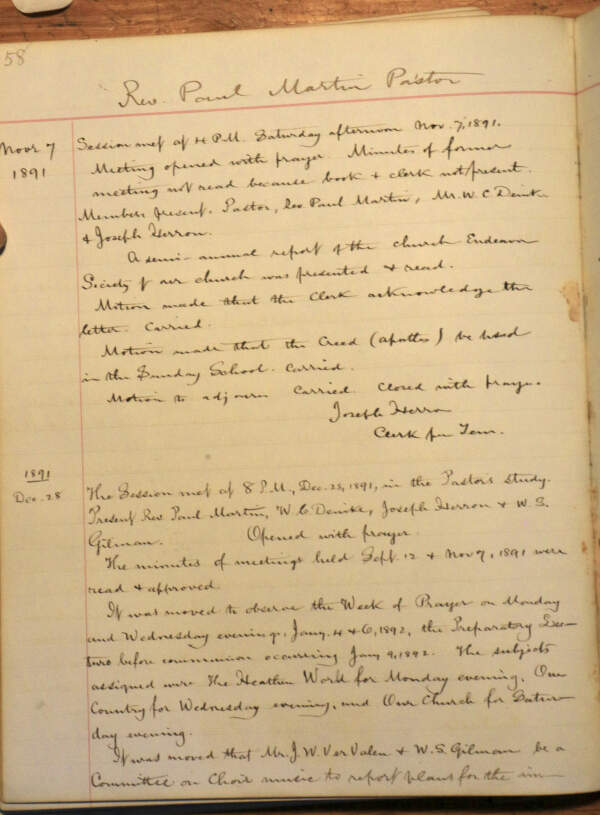 58
Rev. Paul Martin Pastor
Nov 7
1891
Session met at 4 P.M. Saturday afternoon Nov. 7, 1891.
Meeting opened with prayer. Minutes of former
meeting not read because book & clerk not present.
Members present. Pastor, Rev Paul Martin, Mr. W. C. Denike
& Joseph Herron.
A semi-annual report of the church Endeavor
Society of our church was presented & read.
Motion made that the Clerk acknowledge the
letter. Carried.
Motion made that the Creed (apostles) be used
in the Sunday School. Carried.
Motion to adjourn Carried. Closed with prayer.
Joseph Herron
Clerk pro Tem.
1891
Dec. 28
The Session met at 8 P.M., Dec. 28, 1891, in the Pastor's study.
Present Rev Paul Martin, W. C. Denike, Joseph Herron & W. S.
Gilman. Opened with prayer.
The minutes of meetings held Sept. 12 & Nov 7, 1891 were
read & approved
It was moved to observe the Week of Prayer on Monday
and Wednesday evenings, Jany. 4 & 6, 1892, the Preparatory Lec-
ture before communion occurring Jany 9, 1892. The subjects
assigned were The Heathen World for Monday evening, Our
Country for Wednesday evening, and Our Church for Satur-
day evening.
It was moved that Mr. J. W. Ver Valen & W. S. Gilman be a
Committee on Choir music to report plans for the im-